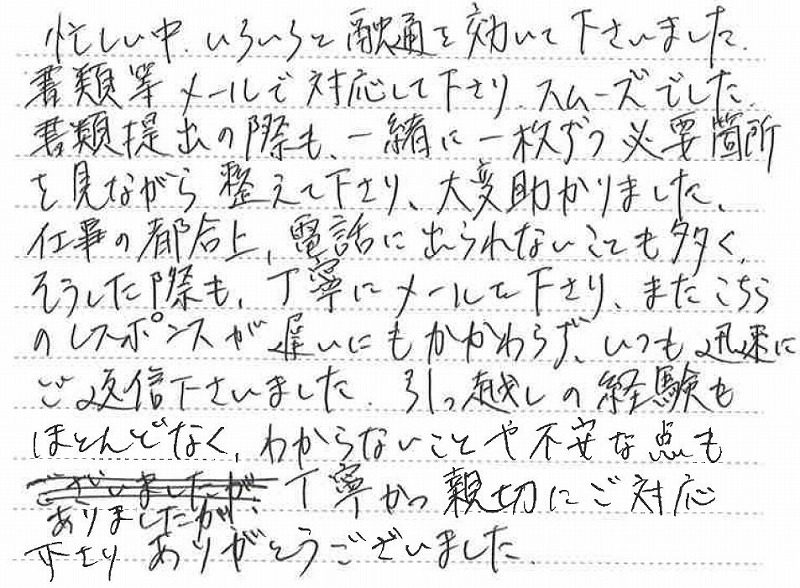 忙しい中、いろいろと融通を効いて下さいました。
書類等メールで対応して下さり、スムーズでした。
書類提出の際も、一緒に一枚ずつ必要箇所
を見ながら整えて下さり、大変助かりました。
仕事の都合上、電話に出られないことも多く、
そうした際も、丁寧にメールを下さり、またこちら
のレスポンスが遅いにもかかわらず、いつも迅速に
ご返信下さいました。引っ越しの経験も
ほとんどなく、わからないことや不安な点も
ございましたが、丁寧かつ親切にご対応
ありましたが、
下さりありがとうございました。